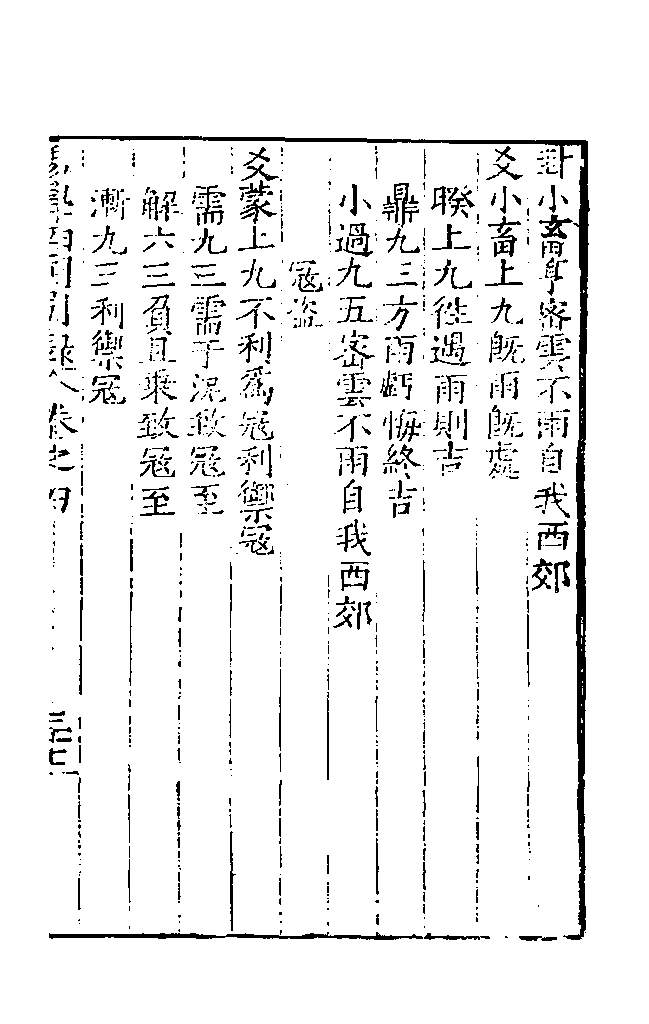 卦小畜亨密雲不雨自我西郊
爻小畜上九旣雨旣處
睽上九徃遇雨則吉
鼎九三方雨虧悔終吉
小過九五密雲不雨自我西郊
寇盜
爻蒙上九不利爲寇利禦寇
需九三需于泥致寇至
解六三負且乘致寇至
漸九三利禦寇
卷之四